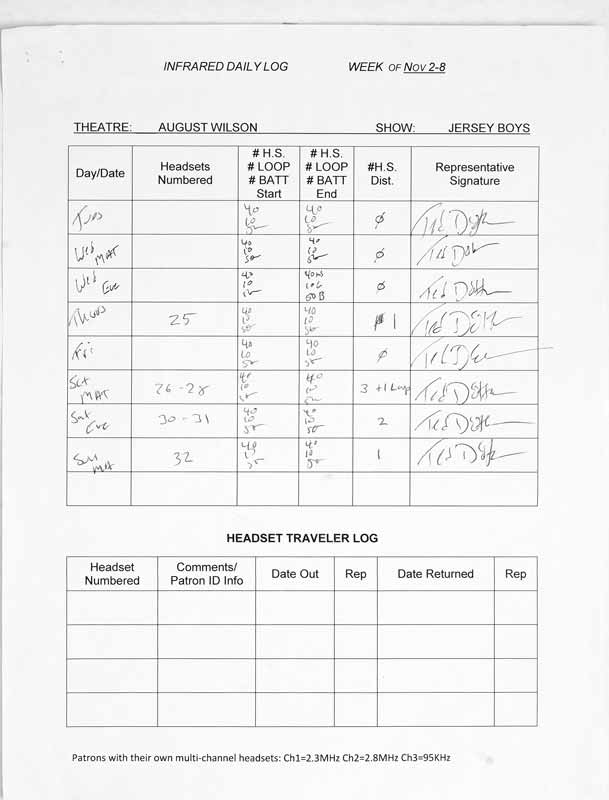 INFRARED DAILY LOG WEEK OF NOV 2-8
THEATRE: AUGUST WILSON SHOW: JERSEY BOYS
Day/Date
Headsets
Numbered
# H.S.
# LOOP
# BATT
Start
# H.S.
# LOOP
# BATT
End
#H.S.
Dist.
Representative
Signature
Tues
40
10
50
40
10
50
Ø
Wed
MAT
40
10
50
40
10
50
Ø
Wed
Eve
40
10
50
40 HS
10 L
50 B
Ø
Thurs
25
40
10
50
40
10
50
1
Fri
40
10
50
40
10
50
Ø
Sat
MAT
26-28
40
10
50
40
10
50
3 +1 Loop
Sat
Eve
30-31
40
10
50
40
10
50
2
Sun
MAT
32
40
10
50
40
10
50
1
HEADSET TRAVELER LOG
Headset
Numbered
Comments/
Patron ID Info
Date Out
Rep
Date Returned
Rep
Patrons with their own multi-channel headsets: Ch1=2.3MHz Ch2=2.8MHz Ch3=95KHz